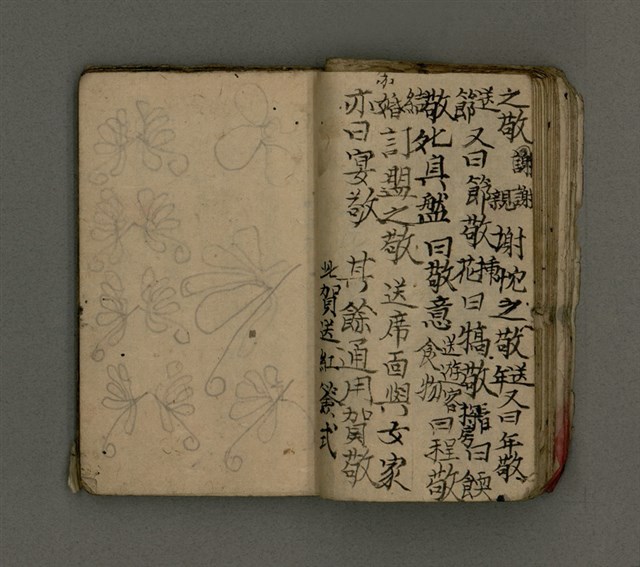 之敬 謝親 謝忱之敬 送年 又曰年敬
送節 又曰節敬 插花曰犒敬 探房曰餪
敬 外具盤曰敬意 送遊客食物曰程敬
結婚 訂盟之敬 送席面與女家
亦曰宴敬 其餘通用賀敬
此賀送紅簽式